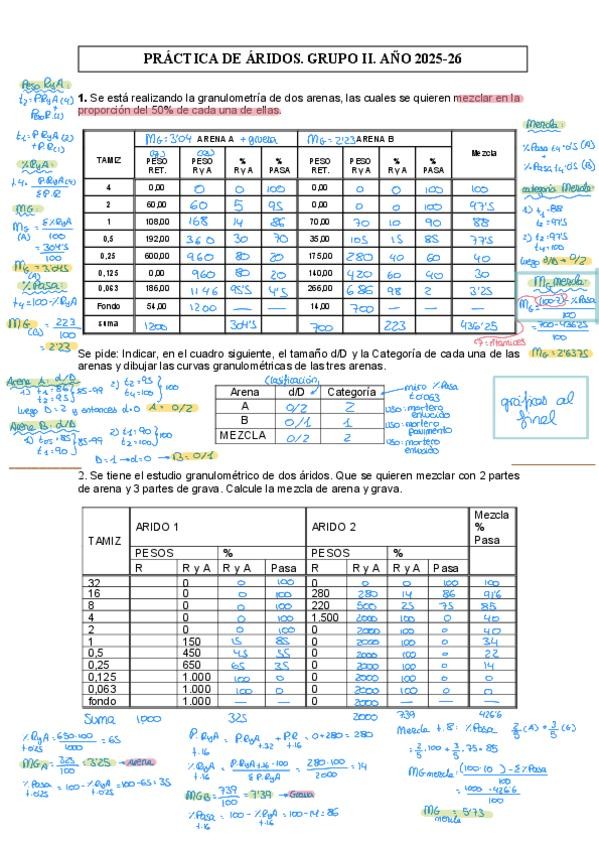 PRÁCTICA DE ÁRIDOS. GRUPO II. AÑO 2025-26
1. Se está realizando la granulometría de dos arenas, las cuales se quieren mezclar en la
proporción del 50% de cada una de ellas.
Peso RyA:
t2 = P.RyA(4)
+
Peso R(2)
t1 = P.RyA(2)
+ P.R(1)
% RyA:
t4 = P.RyA(4)
Σ P.R
MG:
MG = Σ%RyA
(A) 100
= 304'5
100
MG = 3'045
(A)
% Pasa:
t4 = 100 - %RyA
MG = 223
(B) 100
= 2'23
TAMIZ MG = 3'04 ARENA A + gruesa MG = 2'23 ARENA B Mezcla
PESO RET. PESO R y A % R y A % PASA PESO RET. PESO R y A % R y A % PASA
4 0,00 0 0 100 0,00 0 0 100 100
2 60,00 60 5 95 0,00 0 0 100 97'5
1 108,00 168 14 86 70,00 70 10 90 88
0,5 192,00 360 30 70 35,00 105 15 85 77'5
0,25 600,00 960 80 20 175,00 280 40 60 40
0,125 0,00 960 80 20 140,00 420 60 40 30
0,063 186,00 1146 95'5 4'5 266,00 686 98 2 3'25
Fondo 54,00 1200 — — 14,00 700 — —
suma 1200 304'5 700 223 436'25
Mezcla:
% Pasa t4 · 0'5 (A)
+
% Pasa t4 · 0'5 (B)
categoría Mezcla:
1) t1 = 88
t2 = 97'5
2) t2 = 97'5
t4 = 100
luego d/D → 0/2
MG mezcla:
MG = (100·7) - Σ%Pasa
100
= 700 - 436'25
100
MG = 2'6375
Se pide: Indicar, en el cuadro siguiente, el tamaño d/D y la Categoría de cada una de las
arenas y dibujar las curvas granulométricas de las tres arenas.
Arena A: d/D
1) t1 = 86 85-99
t2 = 95
2) t2 = 95 100
t4 = 100
luego D = 2 y entonces d = 0 A = 0/2
Arena B: d/D
1) t0'5 = 85 85-99
t1 = 90
2) t1 = 90 100
t2 = 100
D = 1 → d = 0 → B = 0/1
Clasificación
Arena d/D Categoría
A 0/2 2
B 0/1 1
MEZCLA 0/2 2
miro % Pasa
t0'063
uso: mortero
enlucido
uso: mortero
pavimento
uso: mortero
enlucido
gráficas al
final
2. Se tiene el estudio granulométrico de dos áridos. Que se quieren mezclar con 2 partes
de arena y 3 partes de grava. Calcule la mezcla de arena y grava.
TAMIZ ARIDO 1 ARIDO 2 Mezcla % Pasa
PESOS % PESOS %
R R y A R y A Pasa R R y A R y A Pasa
32 0 0 100 0 0 0 100 100
16 0 0 100 280 280 14 86 91'6
8 0 0 100 220 500 25 75 85
4 0 0 100 1.500 2000 100 0 40
2 0 0 100 0 2000 100 0 40
1 150 15 85 0 2000 100 0 34
0,5 450 45 55 0 2000 100 0 22
0,25 650 65 35 0 2000 100 0 14
0,125 1.000 100 0 0 2000 100 0 0
0,063 1.000 100 0 0 2000 100 0 0
fondo 1.000 — — 0 2000 — — —
Suma 1000 325 2000 739 426'6
%RyA = 650·100 = 65
t0'25 1000
MGA = 325 = 3'25 → Arena
100
% Pasa = 100 - %RyA = 100 - 65 = 35
t0'25 t0'25
P.RyA = P.RyA + P.R = 0 + 280 = 280
t.16 t.32 t.16
%RyA = P.RyA t.16 · 100 = 280·100 = 14
t.16 Σ P.RyA 2000
MGB = 739 = 7'39 → Grava
100
% Pasa = 100 - %RyA = 100 - 14 = 86
t.16 t.16
Mezcla t.8: % Pasa 2/5 (A) + 3/5 (G)
= 2/5 · 100 + 3/5 · 75 = 85
MG mezcla: (100·10) - Σ%Pasa
100
= 1000 - 426'6
100
MG = 5'73
mezcla